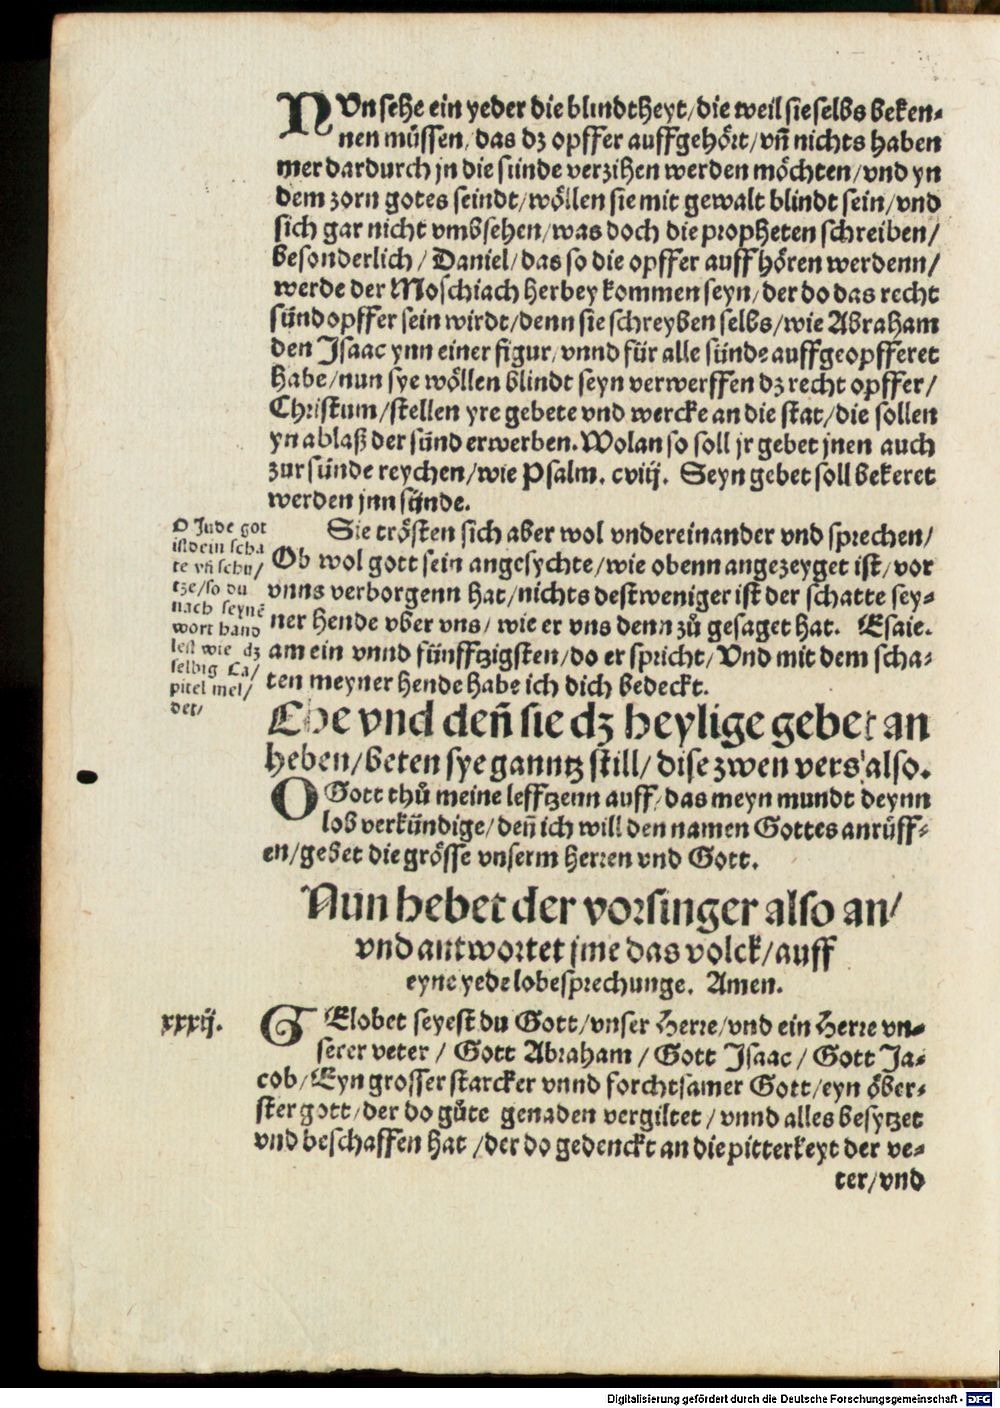 NUn sehe ein yeder die blindtheyt/die weil sie selbs beken-
nen müssen/das dz opffer auffgehört/vñ nichts haben
mer dardurch jn die sünde verzihen werden möchten/vnd yn
dem zorn gotes seindt/wöllen sie mit gewalt blindt sein/vnd
sich gar nicht vmbsehen/was doch die propheten schreiben/
besonderlich/Daniel/das so die opffer auffhören werdenn/
werde der Moschiach herbey kommen seyn/der do das recht
sündopffer sein wirdt/denn sie schreyben selbs/wie Abraham
den Isaac ynn einer figur/vnnd für alle sünde auffgeopfferet
habe/nun sye wöllen blindt seyn verwerffen dz recht opffer/
Christum/stellen yre gebete vnd wercke an die stat/die sollen
yn ablaß der sünd erwerben. Wolan so soll jr gebet jnen auch
zur sünde reychen/wie Psalm. cviij. Seyn gebet soll bekeret
werden jnn sünde.
Sie trösten sich aber wol vndereinander vnd sprechen/
Ob wol gott sein angesychte/wie obenn angezeyget ist/vor
vnns verborgenn hat/nichts destweniger ist der schatte sey-
ner hende vber vns/wie er vns denn zů gesaget hat. Esaie.
am ein vnnd fünfftzigsten/do er spricht/Vnd mit dem scha-
ten meyner hende habe ich dich bedeckt.
O Jude got
ist dein scha
te vñ schu/
tze/so du
nach seynẽ
wort hand
lest wie dz
selbig Ca/
pitel mel/
det/
Ehe vnd deñ sie dz heylige gebet an
heben/beten sye ganntz still/dise zwen vers also.
O Gott thů meine lefftzenn auff/das meyn mundt deynn
lob verkündige/deñ ich will den namen Gottes anrüff-
en/gebet die grösse vnserm herren vnd Gott.
Nun hebet der vorsinger also an/
vnd antwortet jme das volck/auff
eyne yede lobesprechunge. Amen.
xxxij.
GElobet seyest du Gott/vnser Herre/vnd ein Herre vn-
serer veter/Gott Abraham/Gott Isaac/Gott Ja-
cob/Eyn grosser starcker vnnd forchtsamer Gott/eyn öber-
ster gott/der do gůte genaden vergiltet/vnnd alles besytzet
vnd beschaffen hat/der do gedenckt an die pitterkeyt der ve-
ter/vnd
Digitalisierung gefördert durch die Deutsche Forschungsgemeinschaft - DFG